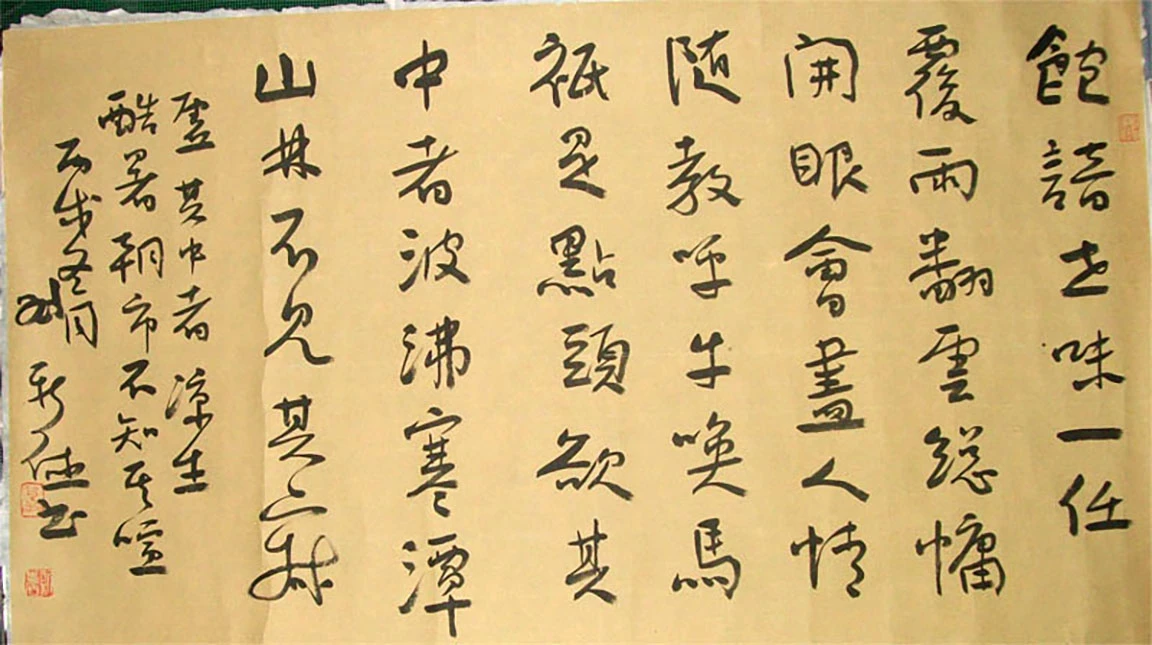 飽諳世味一任
覆雨翻雲總慵
開眼會盡人情
隨教呼牛喚馬
祇是點頭欲其
中者波沸寒潭
山林不見其寂
虛其中者凉生
酷暑朝市不知其喧
丙戌冬月
书